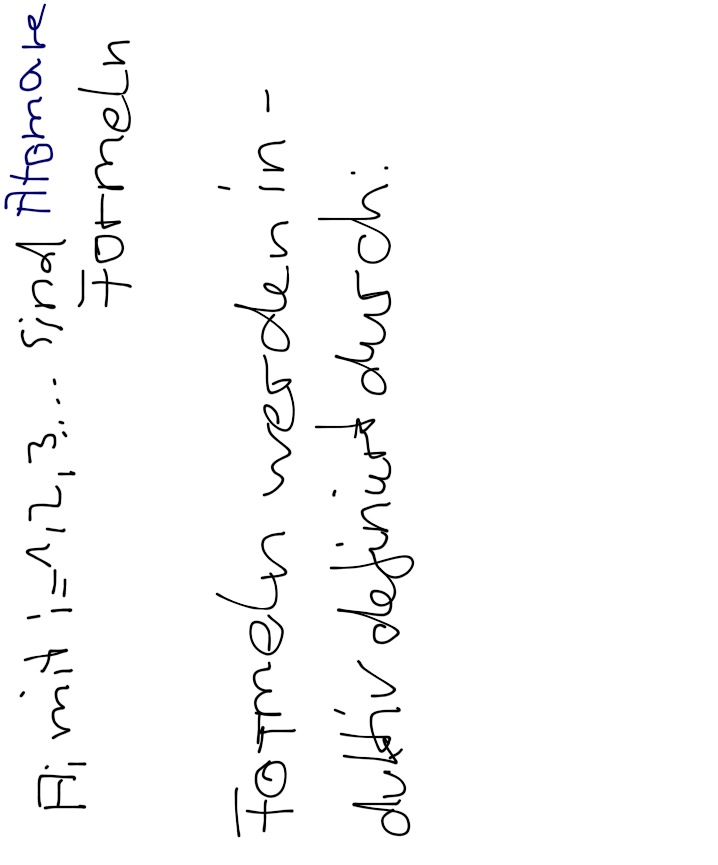 Ai mit i=1,2,3... sind Atomare
Formeln
Formeln werden in-
duktiv definiert durch: